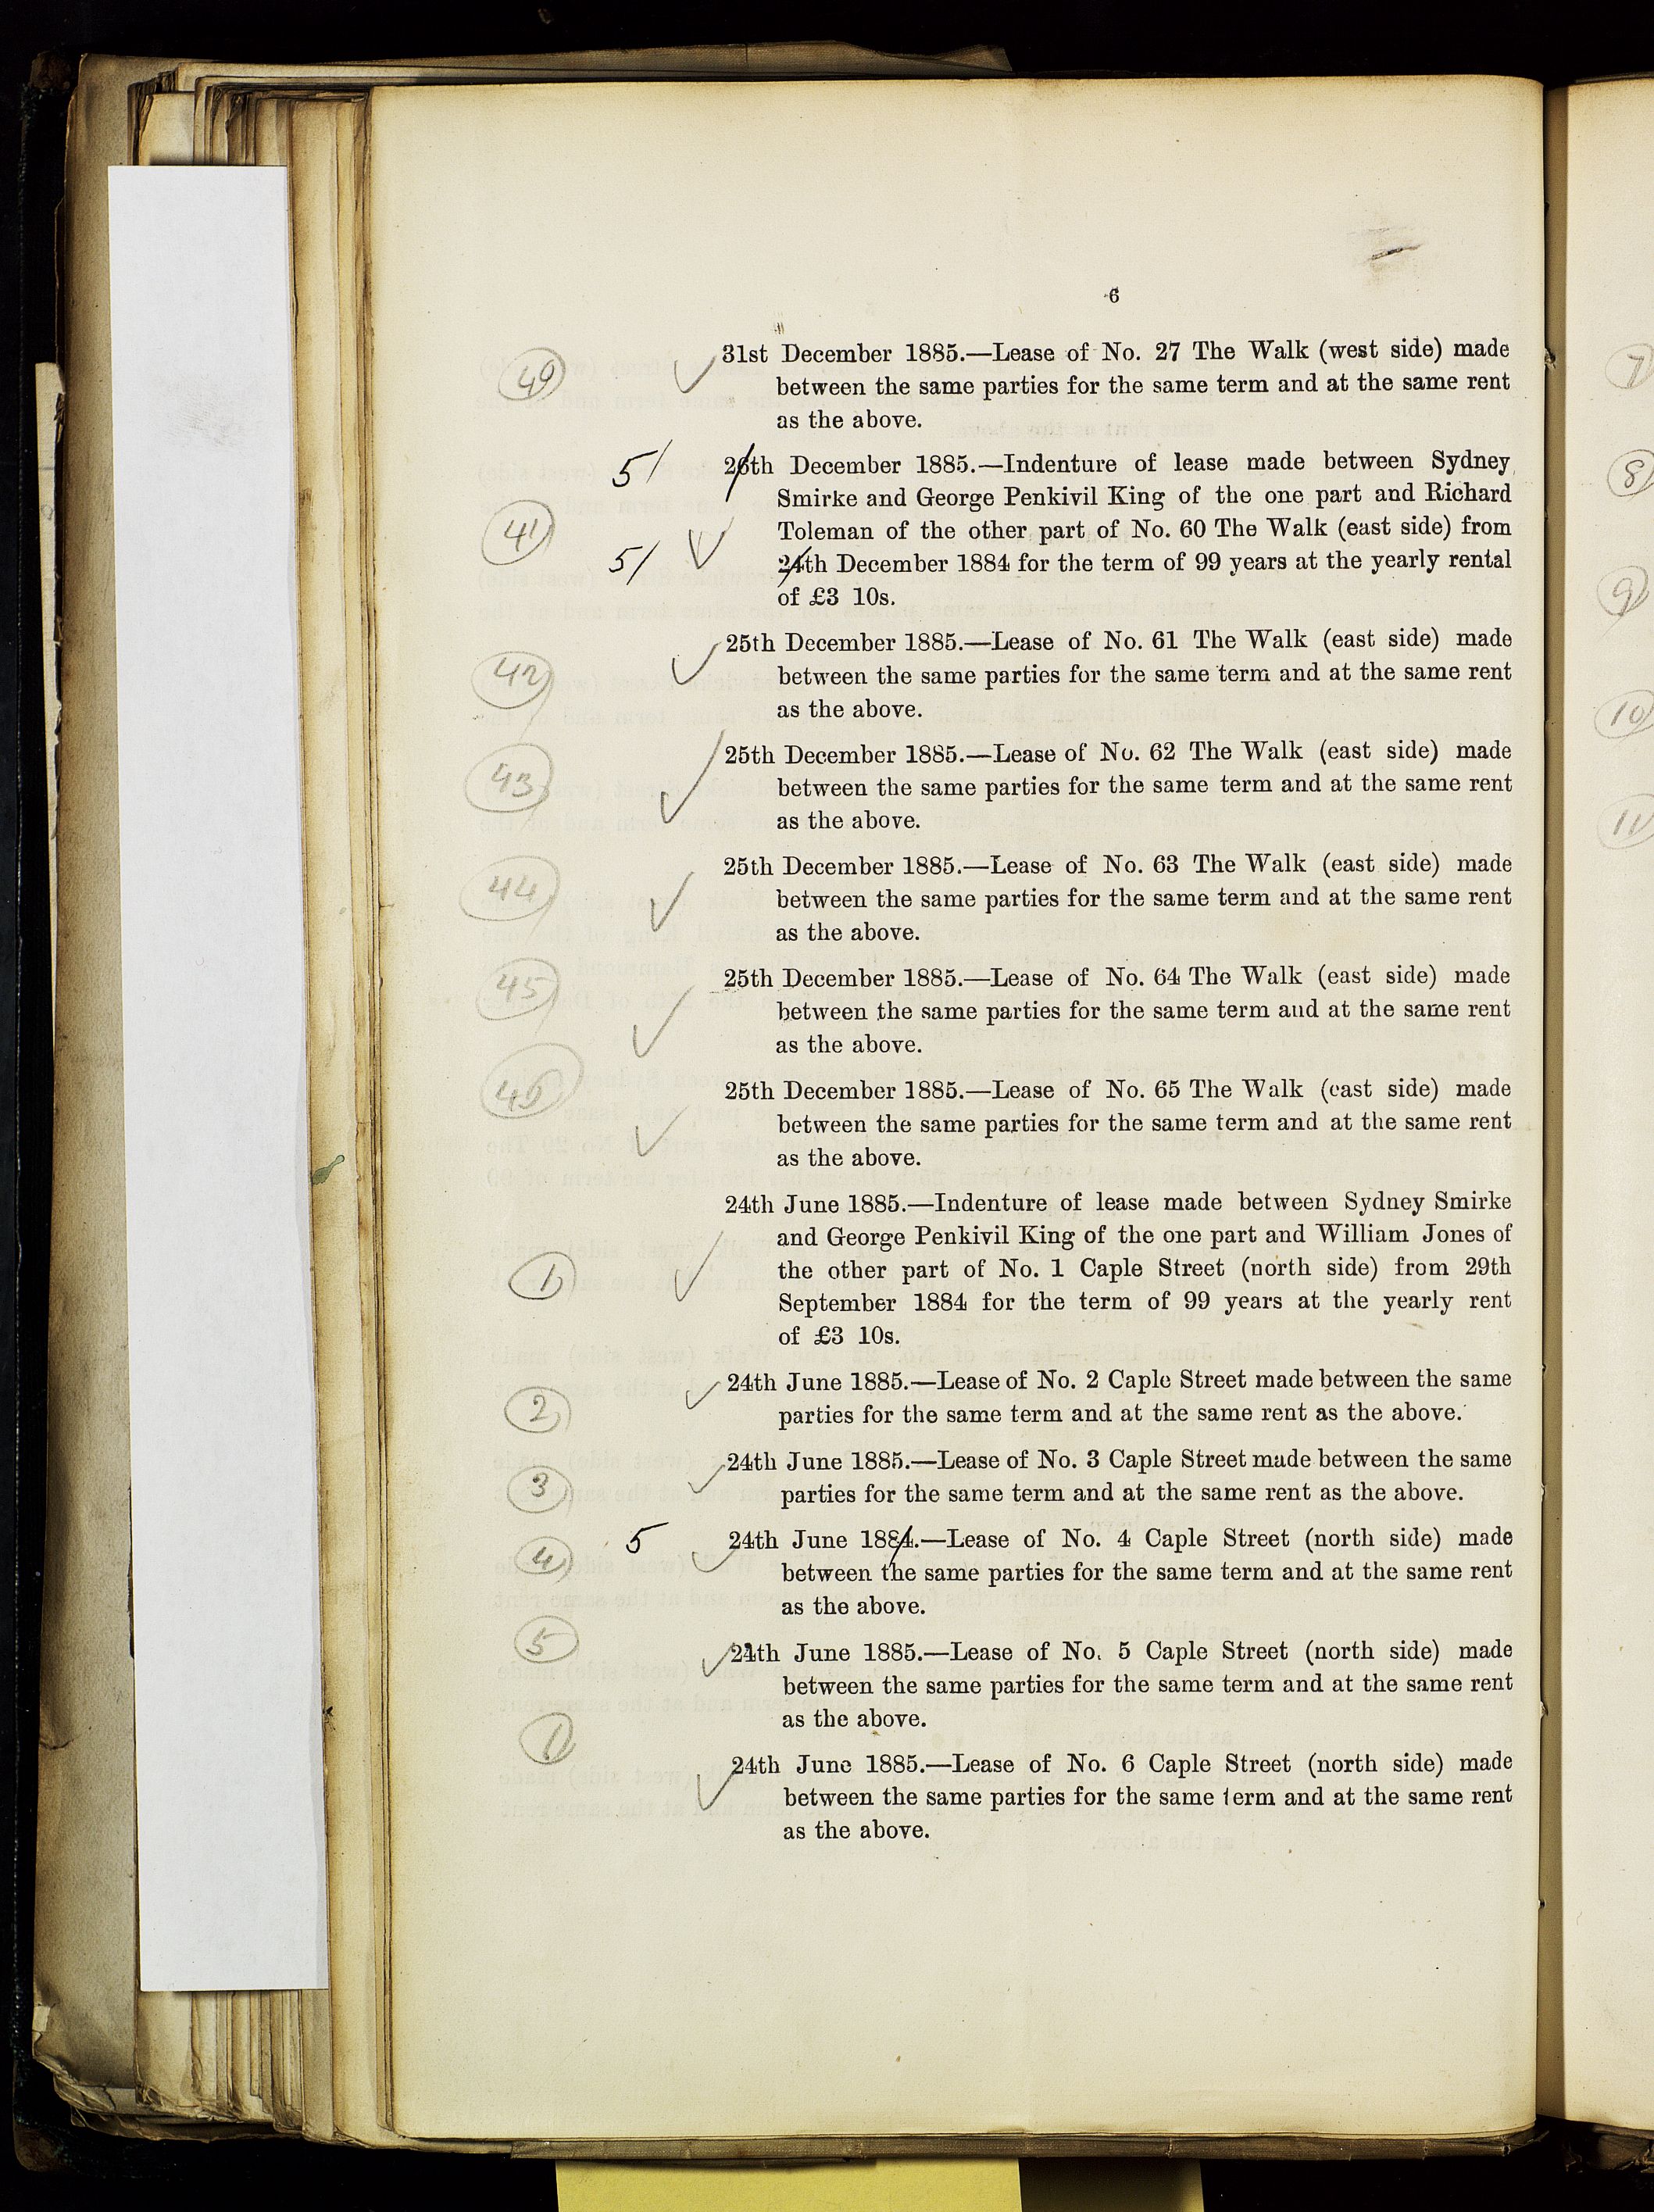 6
49
31st December 1885.—Lease of No. 27 The Walk (west side) made
between the same parties for the same term and at the same rent
as the above.
5/
26th December 1885.—Indenture of lease made between Sydney
Smirke and George Penkivil King of the one part and Richard
41
Toleman of the other part of No. 60 The Walk (east side) from
5/
24th December 1884 for the term of 99 years at the yearly rental
of £3 10s.
42
25th December 1885.—Lease of No. 61 The Walk (east side) made
between the same parties for the same term and at the same rent
as the above.
43
25th December 1885.—Lease of No. 62 The Walk (east side) made
between the same parties for the same term and at the same rent
as the above.
44
25th December 1885.—Lease of No. 63 The Walk (east side) made
between the same parties for the same term and at the same rent
as the above.
45
25th December 1885.—Lease of No. 64 The Walk (east side) made
between the same parties for the same term and at the same rent
as the above.
25th December 1885.—Lease of No. 65 The Walk (east side) made
between the same parties for the same term and at the same rent
as the above.
24th June 1885.—Indenture of lease made between Sydney Smirke
and George Penkivil King of the one part and William Jones of
1
the other part of No. 1 Caple Street (north side) from 29th
September 1884 for the term of 99 years at the yearly rent
of £3 10s.
2
24th June 1885.—Lease of No. 2 Caple Street made between the same
parties for the same term and at the same rent as the above.
3
24th June 1885.—Lease of No. 3 Caple Street made between the same
parties for the same term and at the same rent as the above.
4
5
24th June 1884.—Lease of No. 4 Caple Street (north side) made
between the same parties for the same term and at the same rent
as the above.
5
24th June 1885.—Lease of No. 5 Caple Street (north side) made
between the same parties for the same term and at the same rent
as the above.
1
24th June 1885.—Lease of No. 6 Caple Street (north side) made
between the same parties for the same term and at the same rent
as the above.
7
8
9
10
11